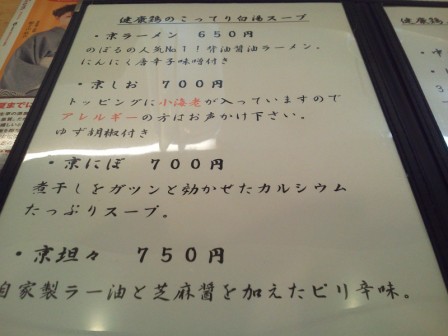 健康鶏のこってり白湯スープ
・京ラーメン ６５０円
のぼるの人気No１！背油醤油ラーメン。
にんにく唐辛子味噌付き
・京しお ７００円
トッピングに小海老が入っていますので
アレルギーの方はお声かけ下さい。
ゆず胡椒付き
・京にぼ ７００円
煮干しをガツンと効かせたカルシウム
たっぷりスープ。
・京坦々 ７５０円
自家製ラー油と芝麻醤を加えたピリ辛味。